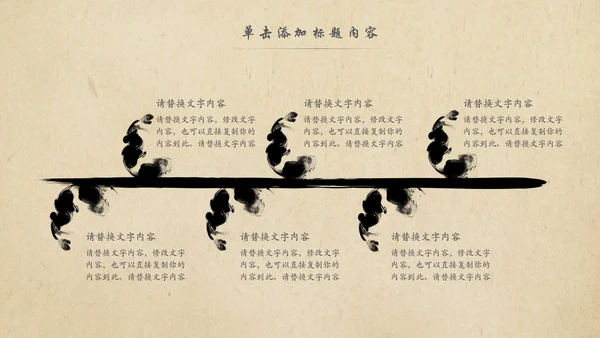 单击添加标题内容
请替换文字内容
请替换文字内容，修改文字
内容，也可以直接复制你的
内容到此。请替换文字内容
请替换文字内容
请替换文字内容，修改文字
内容，也可以直接复制你的
内容到此。请替换文字内容
请替换文字内容
请替换文字内容，修改文字
内容，也可以直接复制你的
内容到此。请替换文字内容
请替换文字内容
请替换文字内容，修改文字
内容，也可以直接复制你的
内容到此。请替换文字内容
请替换文字内容
请替换文字内容，修改文字
内容，也可以直接复制你的
内容到此。请替换文字内容
请替换文字内容
请替换文字内容，修改文字
内容，也可以直接复制你的
内容到此。请替换文字内容